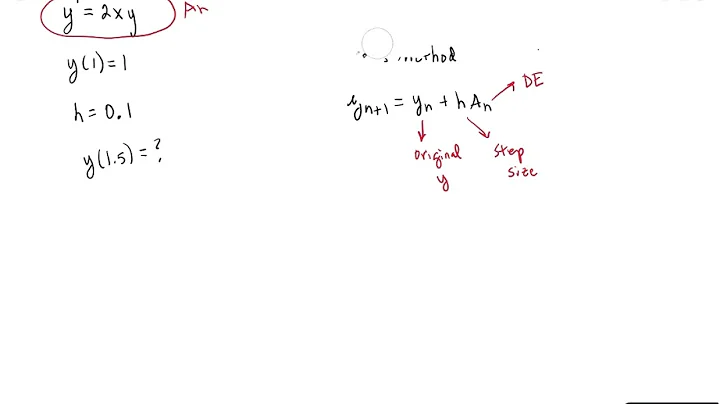 y' = 2xy An
y(1) = 1
h = 0.1
y(1.5) = ?
yn+1 = yn + h An
DE
original
y
step
size